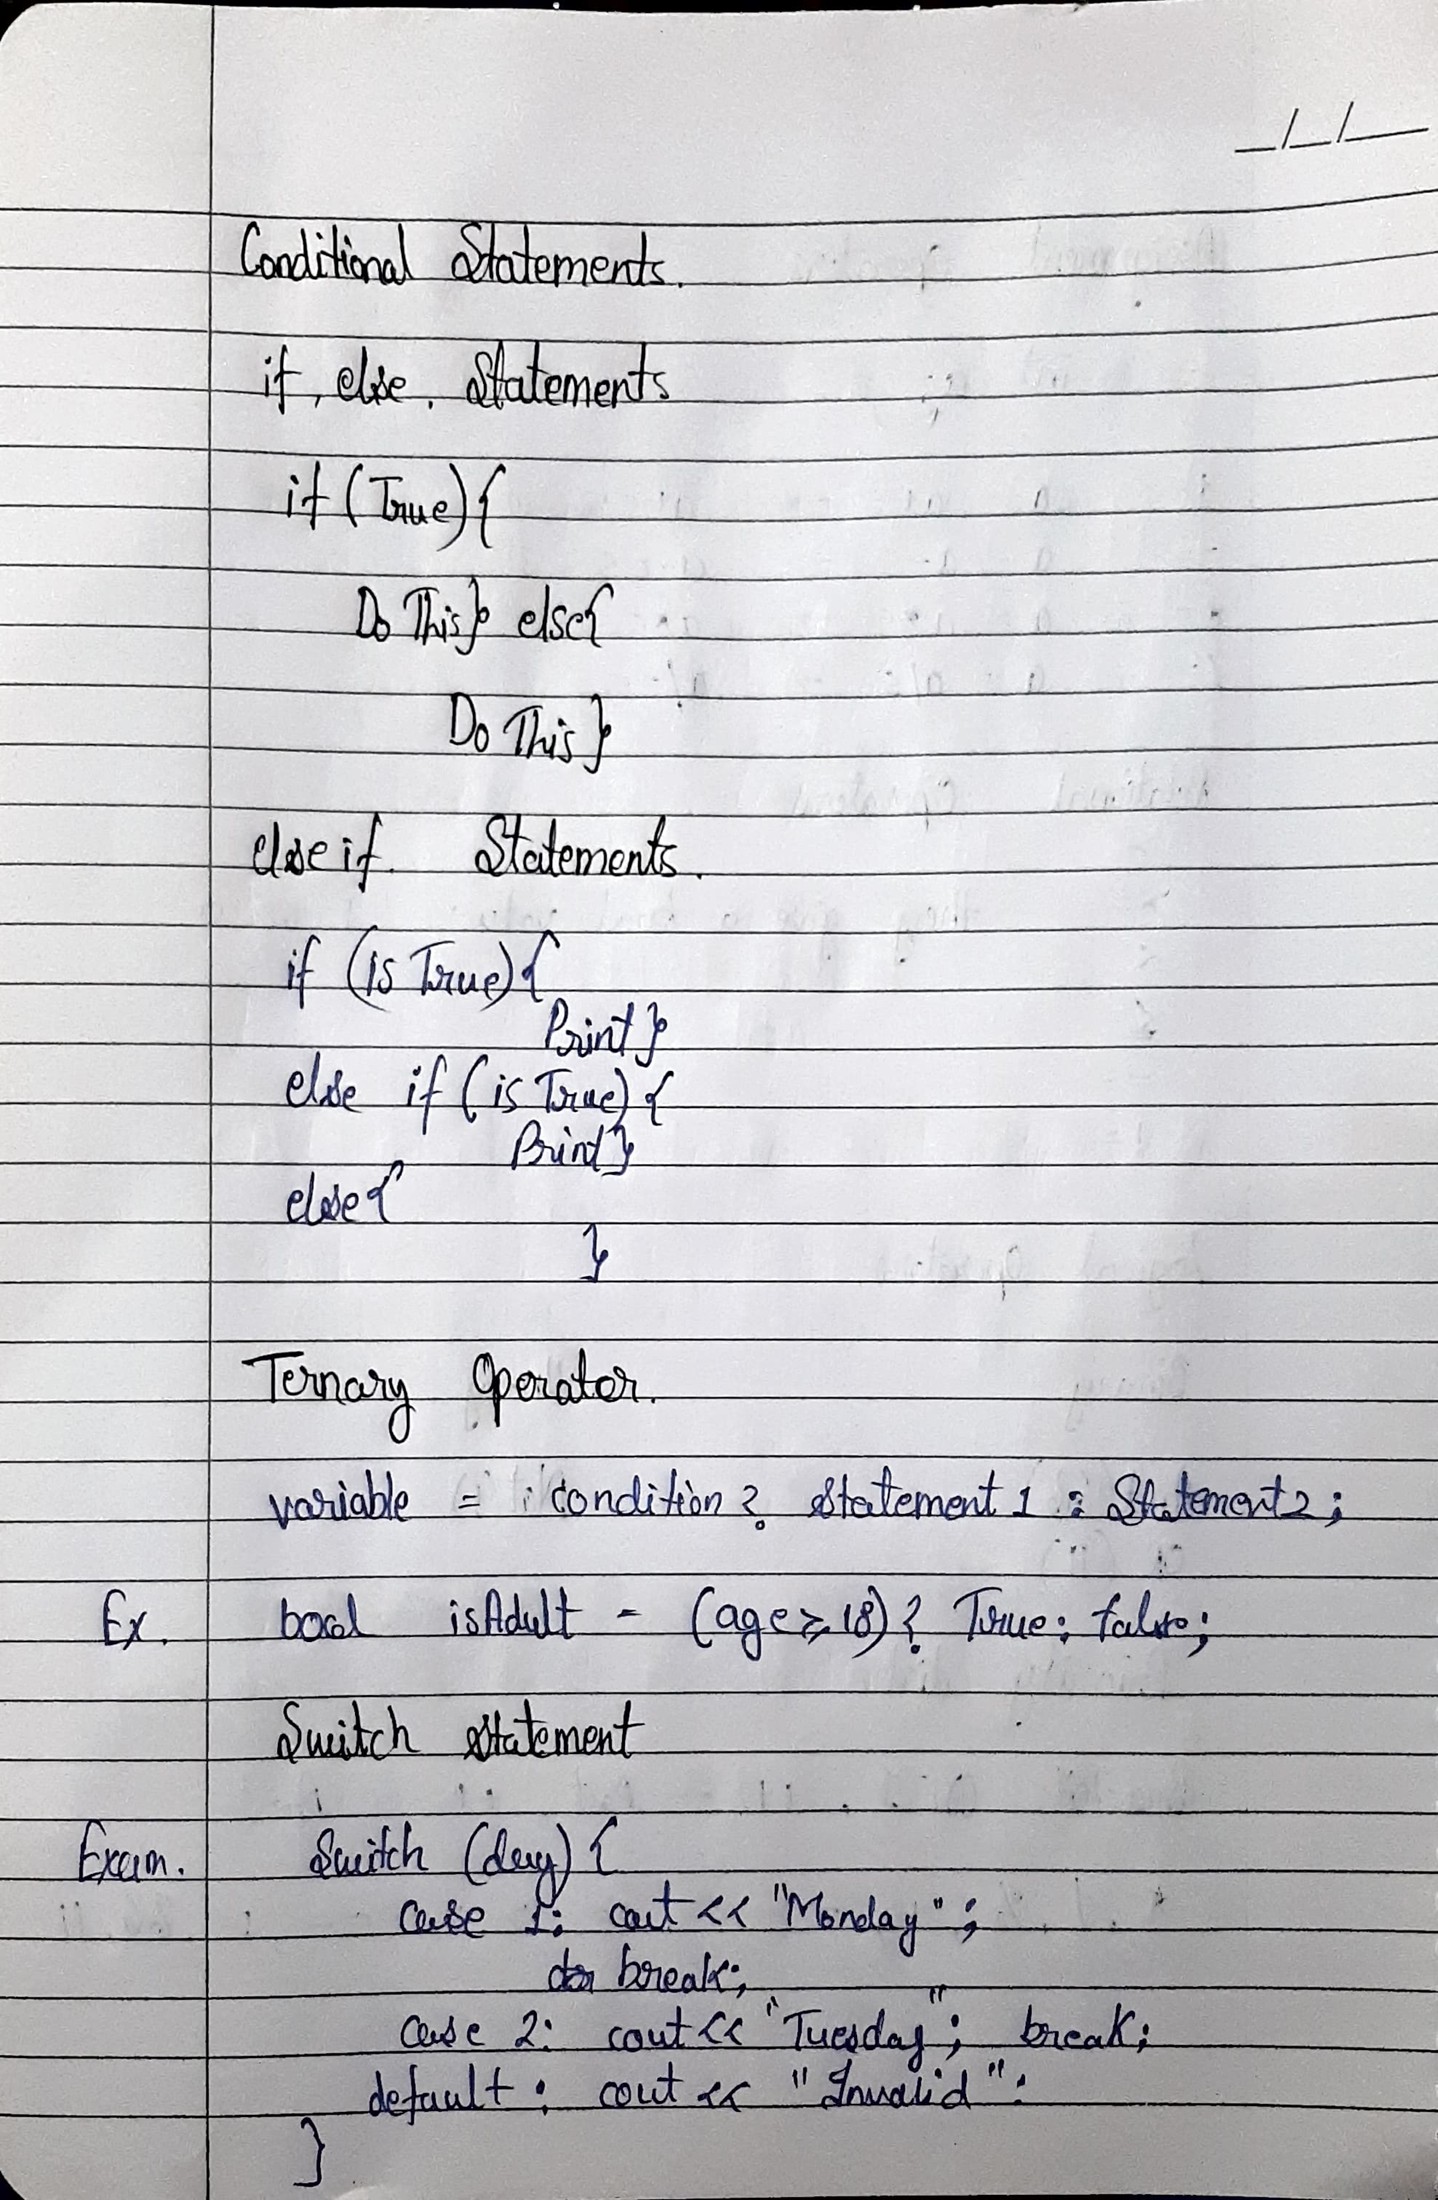 _/_/__
Conditional Statements.
if, else. Statements
if (True){
Do This} else{
Do This}
else if. Statements.
if (is True){
Print}
else if (is True){
Print}
else{
}
Ternary Operator.
variable = condition? statement 1 : Statement 2;
Ex. bool isAdult = (age ⩾ 18)? True: false;
Switch statement
Exam. Switch (day) {
case 1: cout << "Monday" ;
break;
case 2: cout << "Tuesday" ; break;
default : cout << "Invalid" :
}